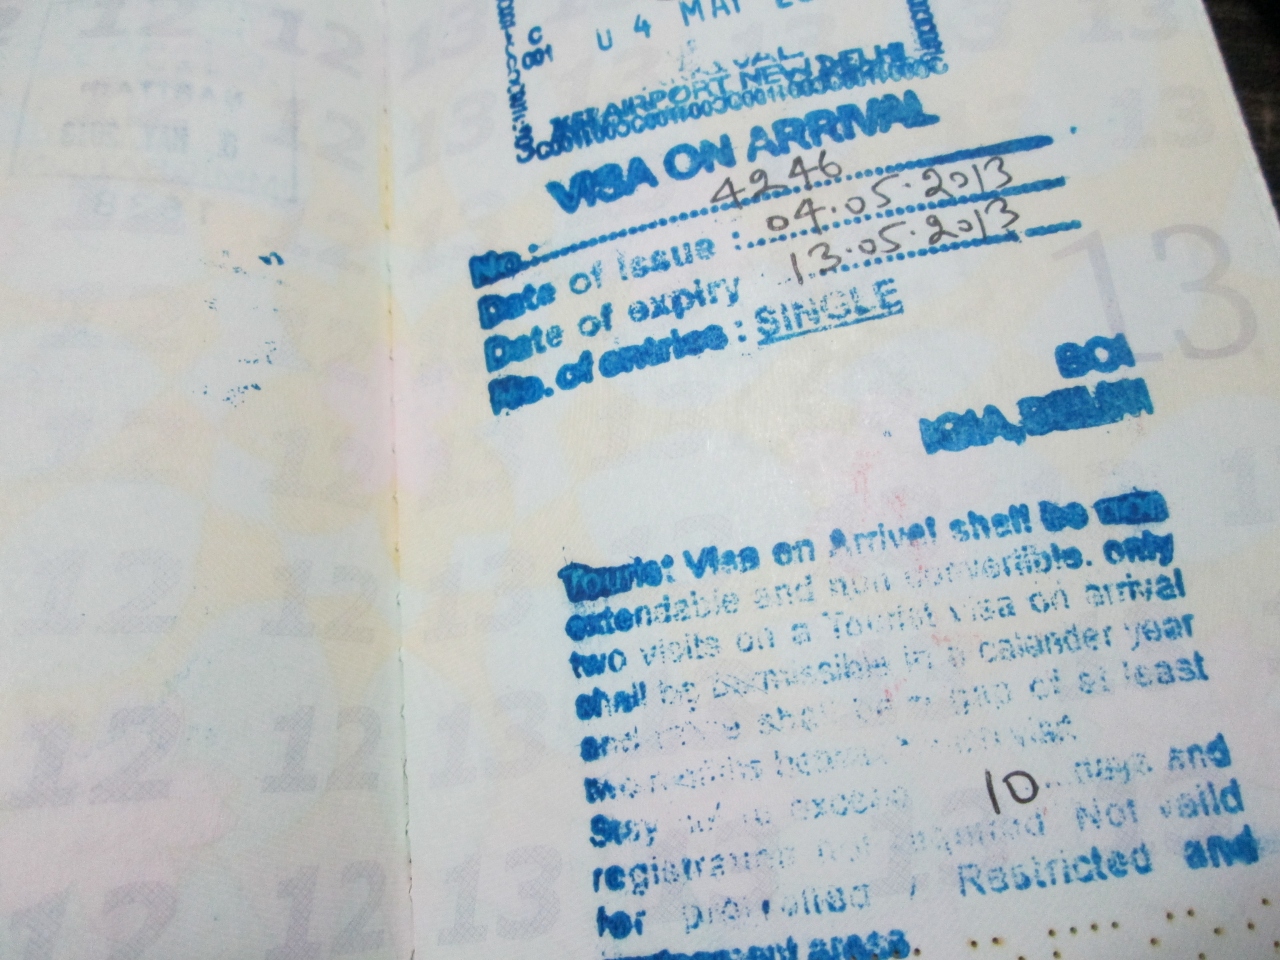 12 12 13 13 13
C
001
04 MAY
AIRPORT NEW DELHI
VISA ON ARRIVAL
No. 4246
Date of Issue : 04.05.2013
Date of expiry 13.05.2013
No. of entries : SINGLE
13
BOI
IGIA, DELHI
Tourist Visa on Arrival shall be non
extendable and non convertible. only
two visits on a Tourist visa on arrival
shall be permissible in a calander year
and there shall be a gap of at least
two months between
Stay exceed 10 days and
registration not required Not valid
for prohibited / Restricted and
areas
12 12 13
12 12 13